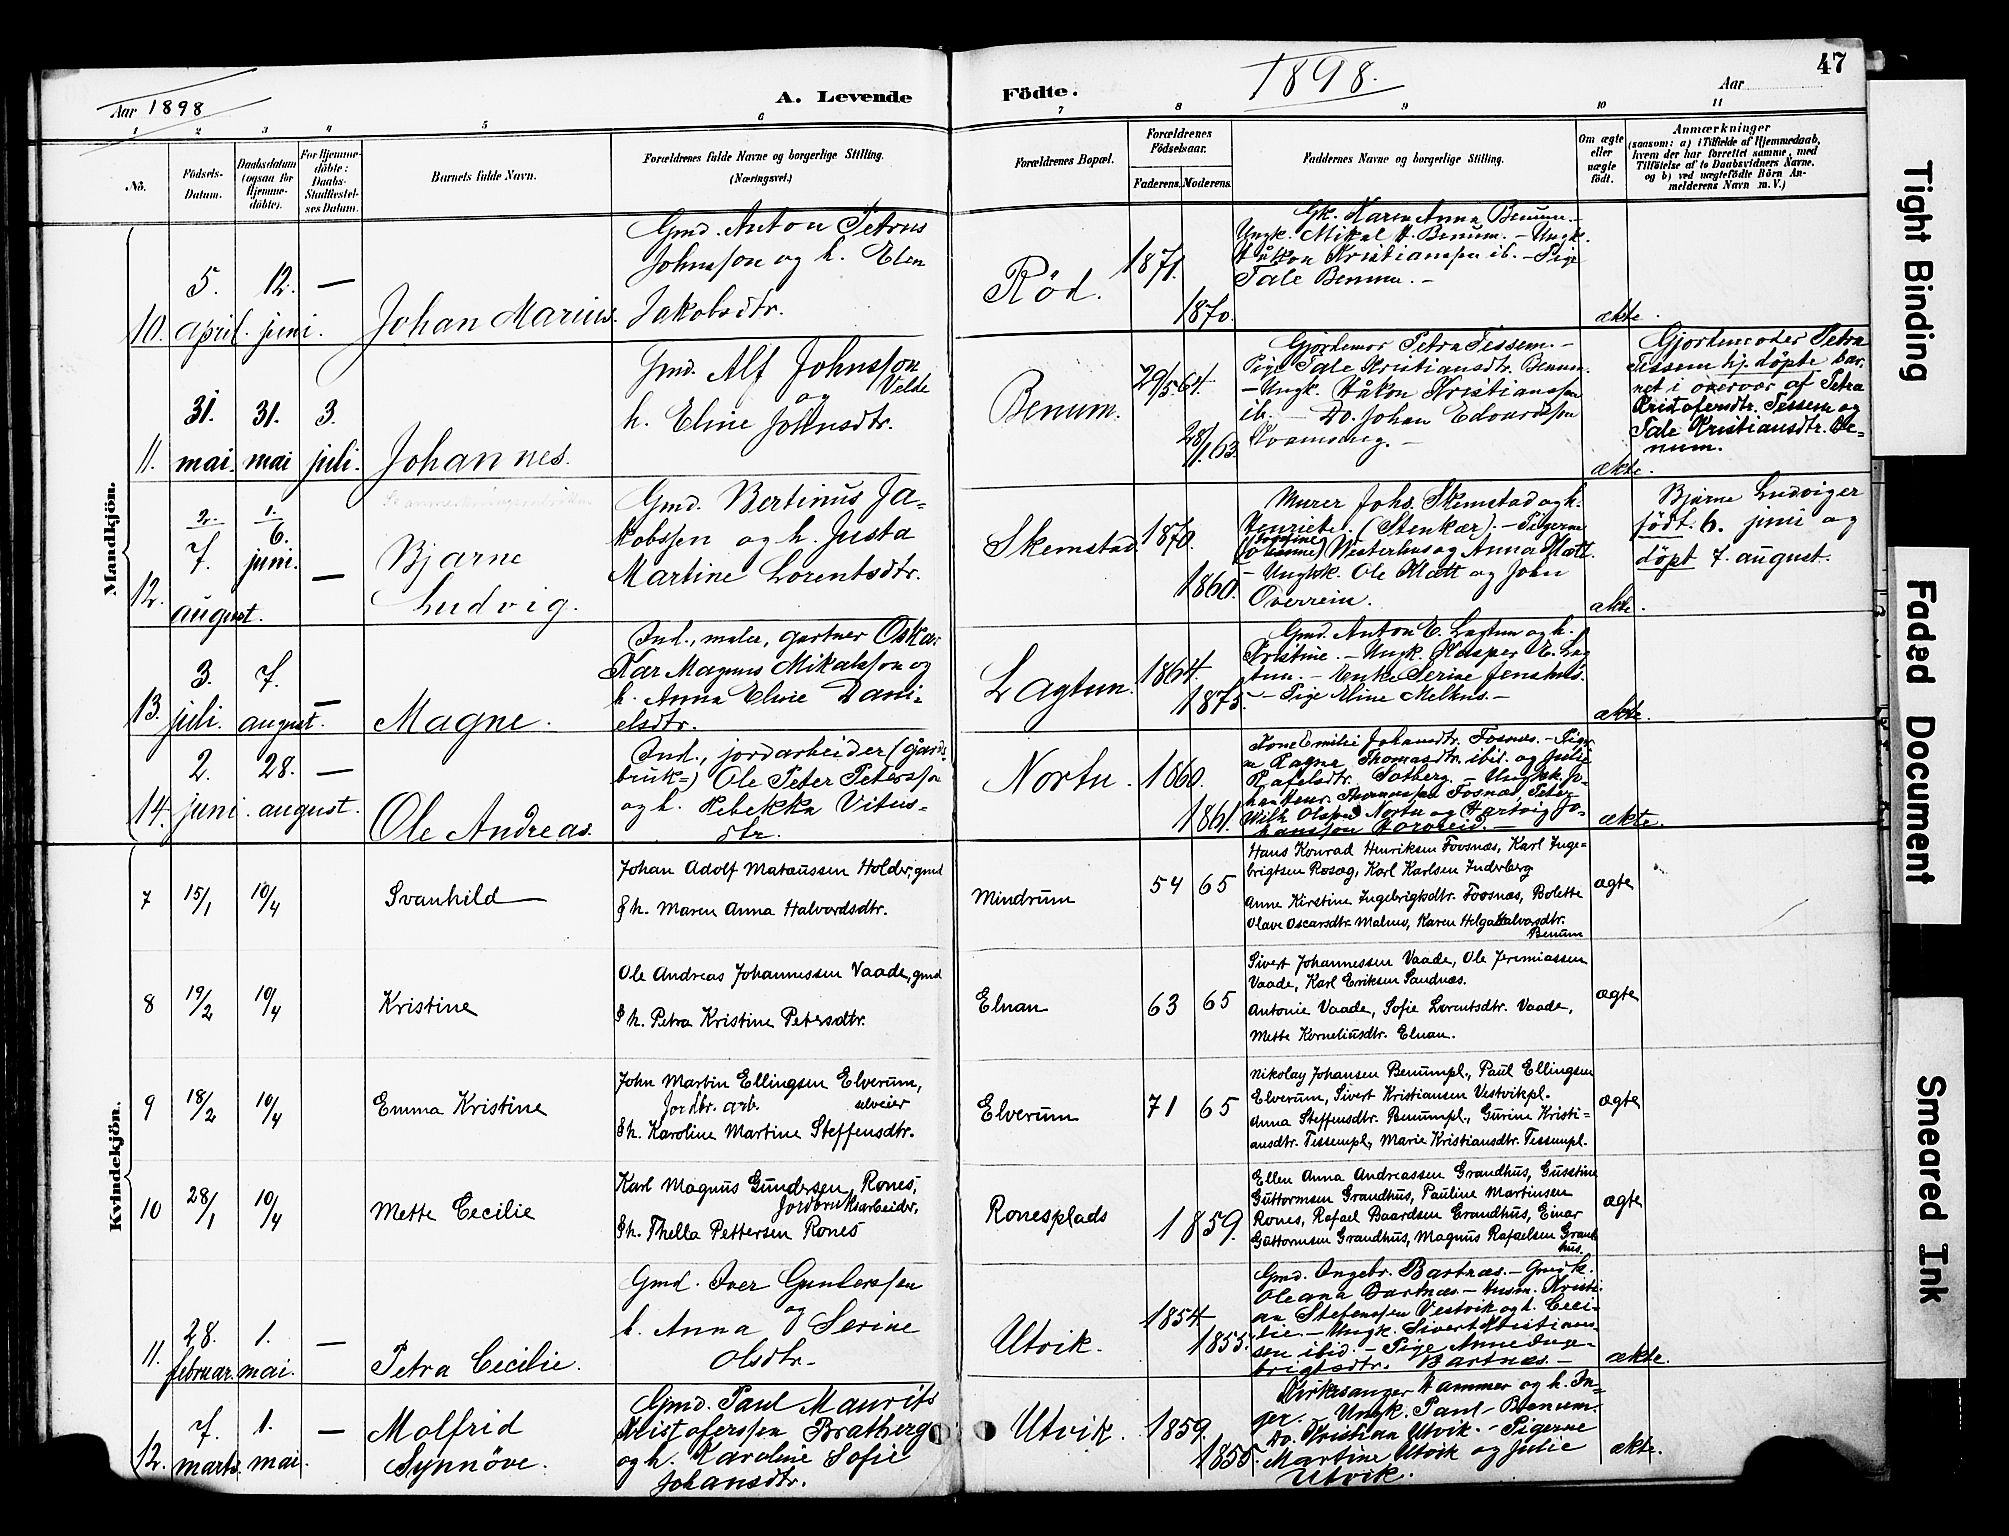 Aar 1898
A. Levende
Födte.
1898.
Aar
47
1
2
3
4
5
6
7
8
9
10
11
No.
Födsels-
Datum.
Daabsdatum
(ogsaa for
Hjemme-
döbte).
For Hjemme-
döbte:
Daabs-
Stadfæstel-
ses Datum.
Barnets fulde Navn.
Forældrenes fulde Navne og borgerlige Stilling.
(Næringsvei.)
Forældrenes Bopæl.
Forældrenes
Födselsaar.
Faderens.
Moderens.
Faddernes Navne og borgerlige Stilling.
Om ægte
eller
uægte
födt.
Anmærkninger
(saasom: a) i Tilfælde af Hjemmedaab,
hvem der har forrettet samme, med
Tilföielse af to Daabsvidners Navne,
og b) ved uægtefödte Börn An-
melderens Navn m. V.)
Mandkjön.
10.
5.
april.
12.
juni.
—
Johan Marius.
Gmd. Anton Petrus
Johnsson og h. Elen
Jakobsdtr.
Röd.
1871.
1870.
Gk. Karen Anna Benum. –
Ungk. Mikal H. Benum. – Ungk.
Håkon Kristianssen ib. – Pige
Tale Benum. –
ækte.
11.
31.
mai.
31.
mai
3.
juli.
Johannes.
Gmd. Alf Johnsson
Velde
og
h. Eline Johnsdtr.
Benum.
29/5 64.
28/1 63.
Gjordemor Petra Tessem. –
Pige Tale Kristiansdtr. Benum.
– Ungk. Håkon Kristianssen
ib. – Do. Johan Edvardssen
Kvamseng. –
ækte.
Gjordemoder Petra
Tessem hj. døpte bar-
net i overvær af Petra
Kristofersdtr. Tessem og
Tale Kristiansdtr. Be-
num.
12.
2.
7.
august.
1.
6.
juni.
—
Bjarne
Ludvig.
Gmd. Bertinus Ja-
kobssen og h. Justa
Martine Lorentsdtr.
Skemstad.
1870.
1860.
Murer Johs. Skemstad og h.
Henriete. (Stenkær). – Pigerne
Westerhus og Anna Klætt.
– Ungkk. Ole Klætt og John
Overrein.
ækte.
Bjarne Ludvig er
født. 6. juni og
døpt 7. august.
13.
3.
juli.
7.
august.
—
Magne.
Ind., maler, gartner Oskar
Kar Magnus Mikalsson og
h. Anna Elvie Dani-
elsdtr.
Lagtun.
1864.
1875.
Gmd. Anton E. Lagtun og h.
Kristine. – Ungk. Kasper E. Lag
tun. – Enke Serine Jenshus.
– Pige Eline Melhus. –
ækte.
14.
2.
juni.
28.
august.
—
Ole Andreas.
Ind., jordarbeider (gårds-
bruk-) Ole Peter Peterssen
og h. Rebekka Vitus-
dtr.
Nortu.
1860.
1861.
Kone Emilie Johansdtr. Fosnes. – Piger-
ne Ragna Thomasdtr. ibid. og Julie
Rafelsdtr. Solberg. – Ungkk. Jo-
han Henr. Thomassen Fosnes Peter
Wilh. Olsen Nortu og Hartvig Jo-
hansson
ækte.
Kvindekjön.
7
15/1
10/4
Svanhild
Johan Adolf Mataussen Holder, gmd
& h. Maren Anna Halvardsdtr.
Mindrum
54
65
Hans Konrad Henriksen Foosnæs, Karl Inge-
brigtsen Rosæg, Karl Karlsen Inderberg
Anne Kirstine Ingebrigtsdtr. Foosnæs, Bolette
Olave Oscarsdtr. Malmo, Karen Helga Halvarsdtr.
Benum
ægte
8
19/2
10/4
Kristine
Ole Andreas Johannessen Vaade, gmd
& h. Petra Kristine Petersdtr.
Elnan
63
65
Sivert Johannessen Vaade, Ole Jeremiassen
Vaade, Karl Eriksen Sandnæs.
Antonie Vaade, Sofie Lorentsdtr. Vaade,
Mette Korneliusdtr. Elnan.
ægte
9
18/2
10/4
Emma Kristine
John Martin Ellingsen Elverum,
Jordbr. arb. selveier
& h. Karoline Martine Steffensdtr.
Elverum
71
65
Nikolay Johansen Benumpl., Paul Ellingsen
Elverum, Sivert Kristiansen Vestvikpl.
Anna Steffensdtr. Benumpl., Gurine Kristi-
ansdtr. Tessempl., Marie Kristiansdtr. Tessempl.
ægte
10
28/1
10/4
Mette Cecilie
Karl Magnus Gundersen Rones,
Jordbruksarbeider,
& h. Thella Pettersen Rones
Ronesplads
1859.
Ellen Anna Andreassen Grandhus, Gusstine
Guttormsen Grandhus, Pauline Martinsen
Rones, Rafael Baardsen Grandhus, Einar
Guttormsen Grandhus, Magnus Rafaelsen Grand
hus.
ægte
11.
28.
februar.
1.
mai.
—
Petra Cecilie.
Gmd. Iver Gunderssen
og
h. Anna Serine
Olsdtr.
Utvik.
1854.
1855.
Gmd. Ingebr. Bartnæs. – Gmdk.
Oleana Bartnæs. – Husm. Kristi-
an Stefenssen Vestvik og h. Ceci-
lie. – Ungk. Sivert Kristians-
sen ibid. – Pige Anne Inge-
brigtsdtr. Bartnæs. –
ækte.
12.
7.
marts.
1.
mai.
—
Molfrid
Synnöve.
Gmd. Paul Maurits
Kristoferssen Bratberg
og h. Karoline Sofie
Johansdtr.
Utvik.
1859.
1855.
Kirkesanger Hammer og h. In-
ger. – Ungk. Paul Benum.
Do. Kristian Utvik. – Pigerne
Martine Utvik og Julie
Utvik.
ækte.
Tight Binding
Faded Document
Smeared Ink